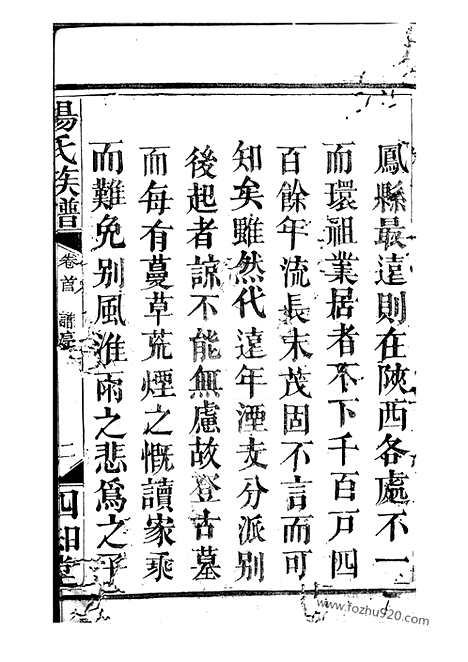 鳳縣最遠則在陝西各處不一
而環祖業居者不下千百戸四
百餘年流長末茂固不言而可
知矣雖然代遠年湮支分派別
後起者諒不能無慮故登古墓
而每有蔓草荒煙之慨讀家乘
而難免別風淮雨之悲爲之
楊氏族譜
卷首
二
四知堂
www.fozhu920.com